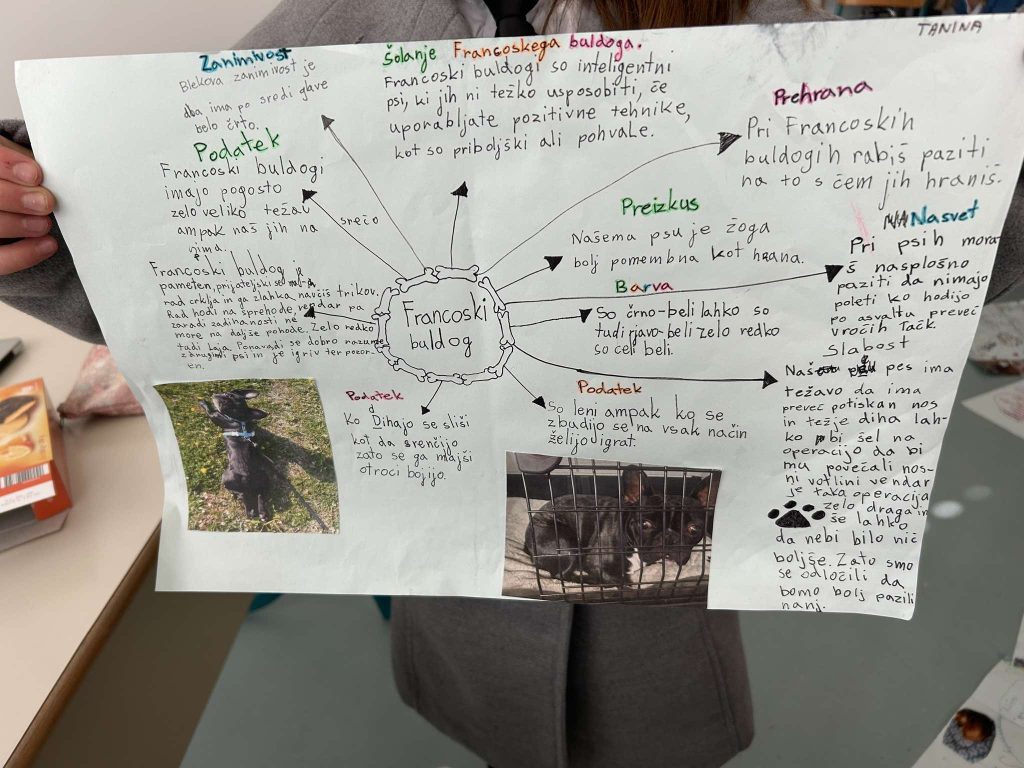 TANINA
Zanimivost
Blekova zanimivost je
da ima po sredi glave
belo črto.
Šolanje Francoskega buldoga.
Francoski buldogi so inteligentni
psi, ki jih ni težko usposobiti, če
uporabljate pozitivne tehnike,
kot so priboljški ali pohvale.
Prehrana
Pri Francoskih
buldogih rabiš paziti
na to s čem jih hraniš.
Podatek
Francoski buldogi
imajo pogosto
zelo veliko težav
ampak naš jih na srečo
nima.
Preizkus
Našema psu je žoga
bolj pomembna kot hrana.
Nasvet
Pri psih mora-
š nasplošno
paziti da nimajo
poleti ko hodijo
po asvaltu preveč
vročih Tačk.
Francoski buldog je
pameten, prijateljski se
rad crklja in ga zlahka navčiš trikov.
Rad hodi na sprehode, vendar pa
zaradi zadihanosti ne
more na daljše pohode. Zelo redko
tudi laja. Ponavadi se dobro razume
z drugimi psi in je igriv ter pozor-
en.
Francoski
buldog
Barva
So črno-beli lahko so
tudi rjavo-beli zelo redko
so celi beli.
Slabost
Naš pes ima
težavo da ima
preveč potiskan nos
in težje diha lah-
ko bi šel na
operacijo da bi
mu povečali nos-
ni votlini vendar
je taka operacija
zelo draga in
še lahko
da nebi bilo nič
boljše. Zato smo
se odločili da
bomo bolj pazili
nanj.
Podatek
Ko Dihajo se sliši
kot da srenčijo
zato se ga majši
otroci bojijo.
Podatek
So leni ampak ko se
zbudijo se na vsak način
želijo igrat.